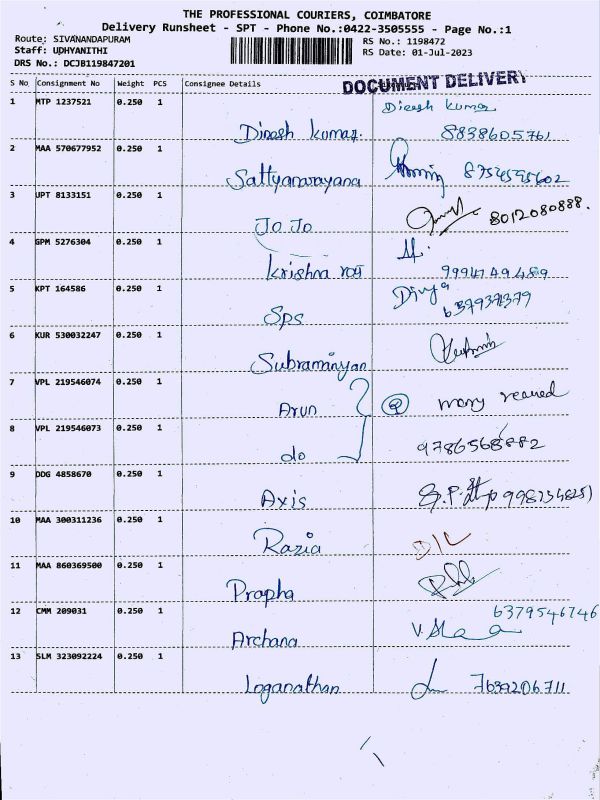 THE PROFESSIONAL COURIERS, COIMBATORE
Delivery Runsheet - SPT - Phone No.:0422-3505555 - Page No.:1
Route: SIVANANDAPURAM RS No.: 1198472
Staff: UDHYANITHI RS Date: 01-Jul-2023
DRS No.: DCJB119847201
DOCUMENT DELIVERY
S No Consignment No Weight PCS Consignee Details
1 MTP 1237521 0.250 1 Dinesh kumar
Dinesh kumar. 8838605761
2 MAA 570677952 0.250 1
Sattyanarayana 8754595602
3 UPT 8133151 0.250 1
JoJo 8012080888.
4 GPM 5276304 0.250 1
krishna 9994749489
5 KPT 164586 0.250 1 Divya
Sps 637937379
6 KUR 530032247 0.250 1
Subramanyan
7 VPL 219546074 0.250 1
Arun
8 VPL 219546073 0.250 1
do 9786568882
9 DDG 4858670 0.250 1
Axis
10 MAA 300311236 0.250 1
Razia D/L
11 MAA 860369500 0.250 1
Prapha
12 CMM 209031 0.250 1 6379546746
Archana
13 SLM 323092224 0.250 1
Loganathan 7639206711